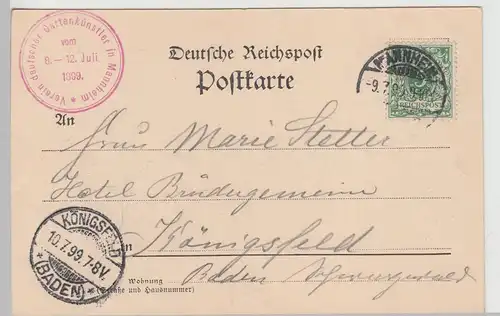 Verein deutscher Gartenkünstler in Mannheim
vom
8. - 12. Juli
1899.
Deutsche Reichspost
Postkarte
MANNHEIM
-9.7.9
REICHSPOST
An
Frau Marie Stetter
Hotel Brüdergemeine
in Königsfeld
Baden Schwarzwald
KÖNIGSFELD
10.7.99.7-8V.
*(BADEN)*
Wohnung
(Straße und Hausnummer)